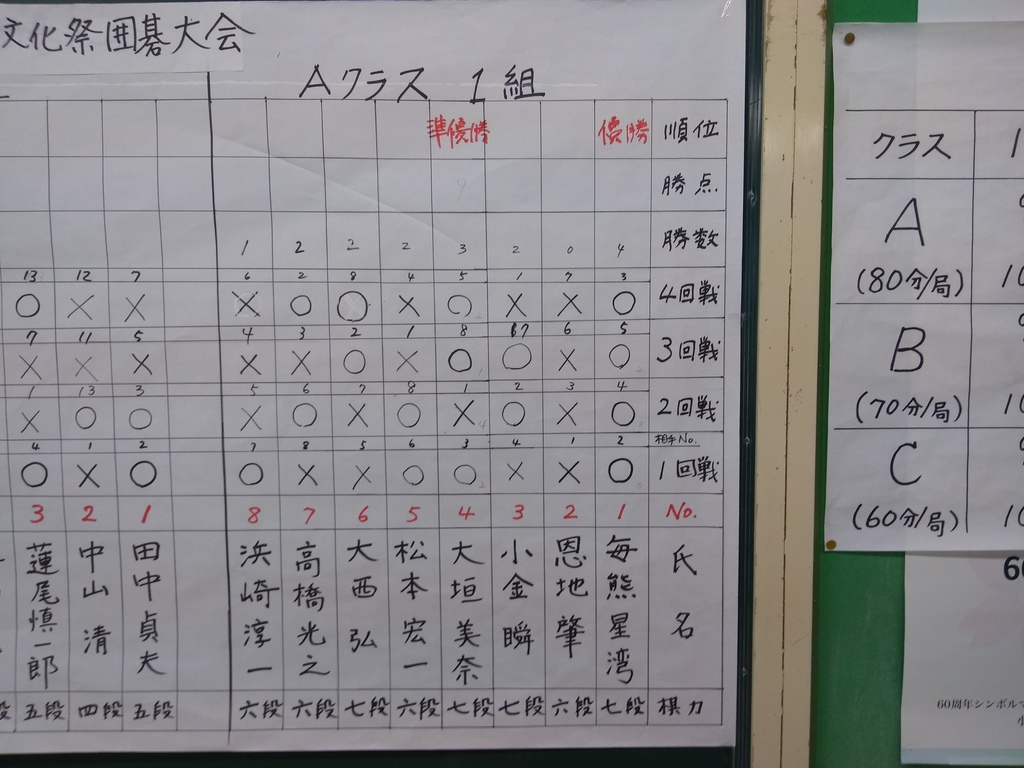 文化祭囲碁大会
Aクラス 1組
準優勝 優勝 順位
勝点
1 2 2 2 3 2 0 4 勝数
13 12 7 6 2 8 4 5 1 7 3
○ × × × ○ ○ × ○ × × ○ 4回戦
7 11 5 4 3 2 1 8 7 6 5
× × × × × ○ × ○ ○ × ○ 3回戦
1 13 3 5 6 7 8 1 2 3 4
× ○ ○ × ○ × ○ × ○ × ○ 2回戦
4 1 2 7 8 5 6 3 4 1 2 相手No.
○ × ○ ○ × × ○ ○ × × ○ 1回戦
3 2 1 8 7 6 5 4 3 2 1 No.
蓮尾慎一郎 中山清 田中貞夫 浜崎淳一 高橋光之 大西弘 松本宏一 大垣美奈 小金瞬 恩地肇 毎熊星湾 氏名
段 五段 四段 五段 六段 六段 七段 六段 七段 七段 六段 七段 棋力
クラス 1
A
(80分/局) 10
B
(70分/局) 10
C
(60分/局) 10
60
60周年シンボルマ